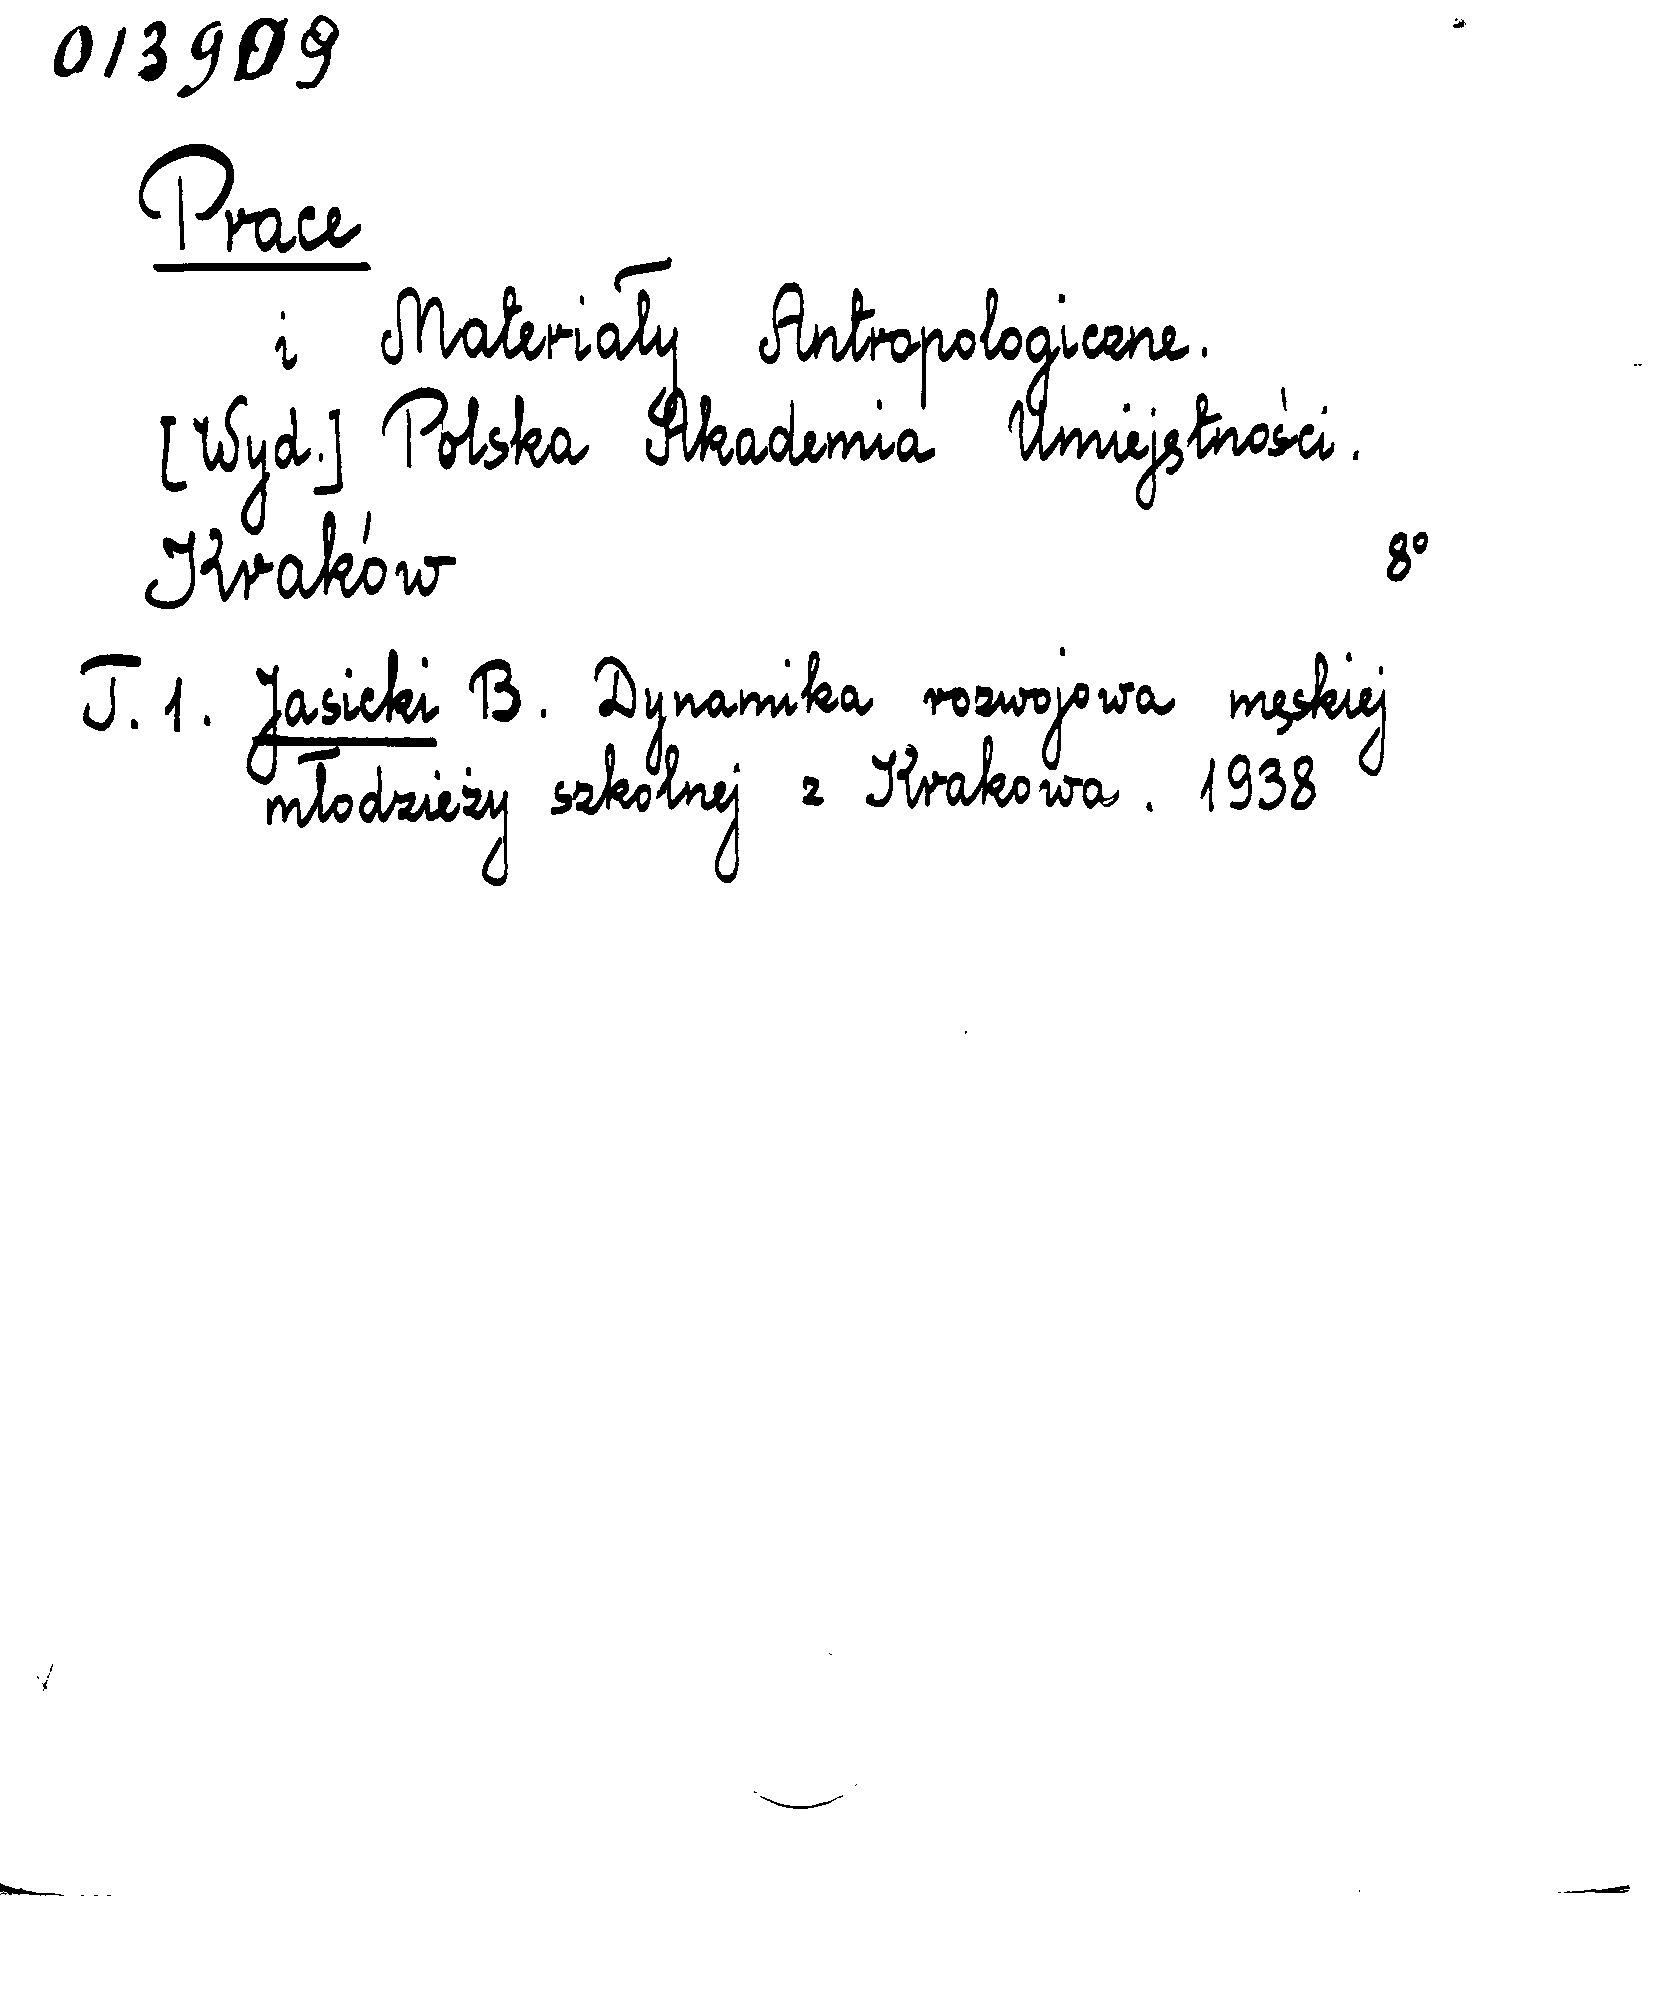 013909
Prace
i Materiały Antropologiczne.
[Wyd.] Polska Akademia Umiejętności.
Kraków 8°
T. 1. Jasicki B. Dynamika rozwojowa męskiej
młodzieży szkolnej z Krakowa. 1938